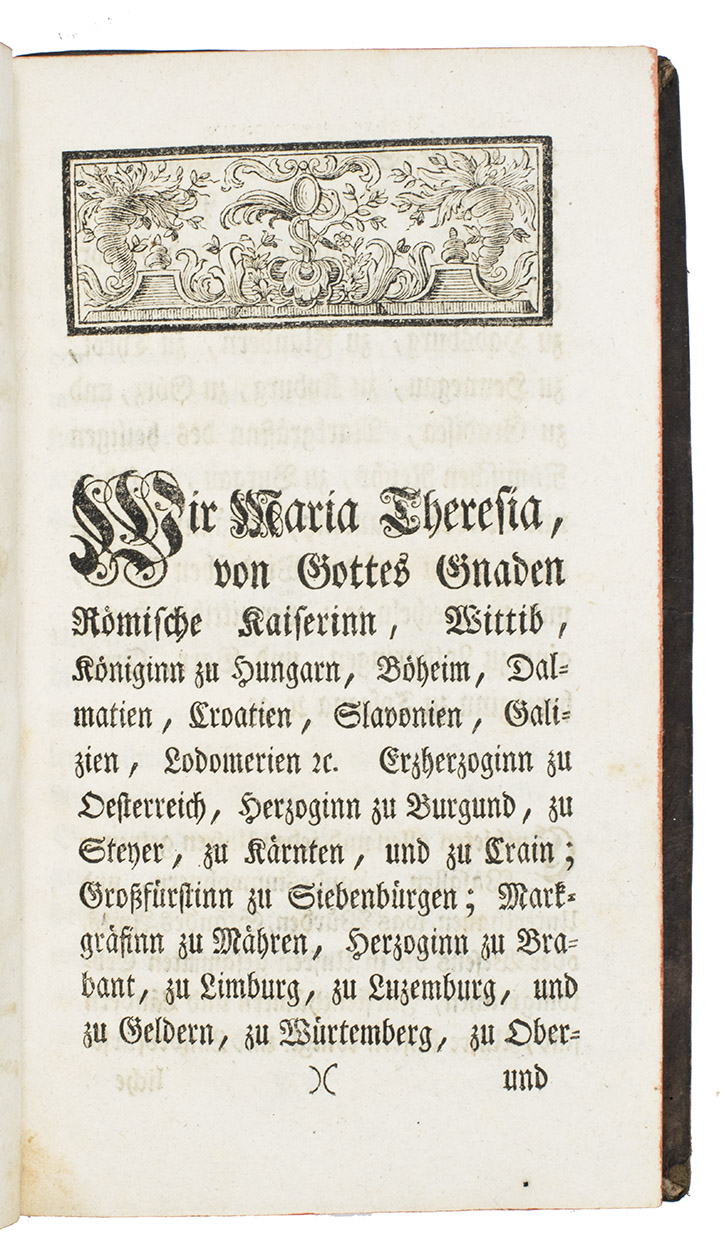 Wir Maria Theresia,
von Gottes Gnaden
Römische Kaiserinn, Wittib,
Königinn zu Hungarn, Böheim, Dal-
matien, Croatien, Slavonien, Gali-
zien, Lodomerien ꝛc. Erzherzoginn zu
Oesterreich, Herzoginn zu Burgund, zu
Steyer, zu Kärnten, und zu Crain;
Großfürstinn zu Siebenbürgen; Mark-
gräfinn zu Mähren, Herzoginn zu Bra-
bant, zu Limburg, zu Luzemburg, und
zu Geldern, zu Würtemberg, zu Ober-
)( und